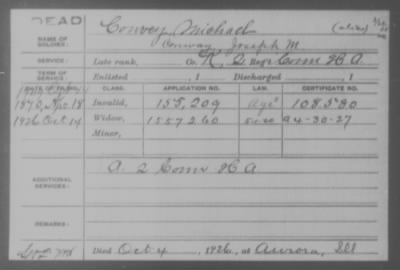 DEAD
NAME OF SOLDIER: Convey, Michael (alias)
Conway, Joseph M.
SERVICE: Late rank, Co. K, 2 Reg't Conn H A
TERM OF SERVICE: Enlisted , 1 Discharged , 1
DATE OF FILING. CLASS. APPLICATION NO. LAW. CERTIFICATE NO.
1870, Nov. 18 Invalid, 155,209
1926 Oct 14 Widow, 1557260 94-30-27
Minor,
ADDITIONAL SERVICES: A. 2 Conn H A
Died Oct 4, 1926, at Aurora, Ill